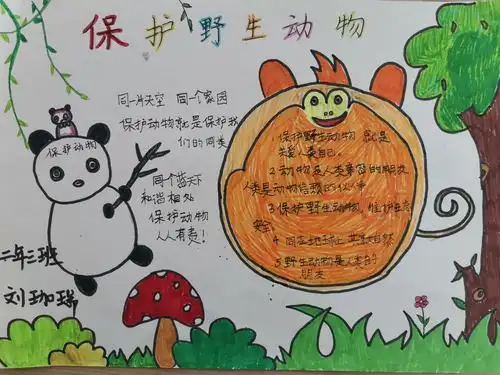 保护野生动物
同一片天空 同一个家园
保护动物就是保护我
们的同类
保护动物
同个蓝天下
和谐相处
保护动物
人人有责!
二年三班
刘珈瑞
1.保护野生动物 就是
关爱人类自己。
2 动物是人类亲密的朋友
人类是动物信赖的伙伴
3 保护野生动物,维护生态
安全
4 同在地球上 共享自然
5 野生动物是人类的
朋友